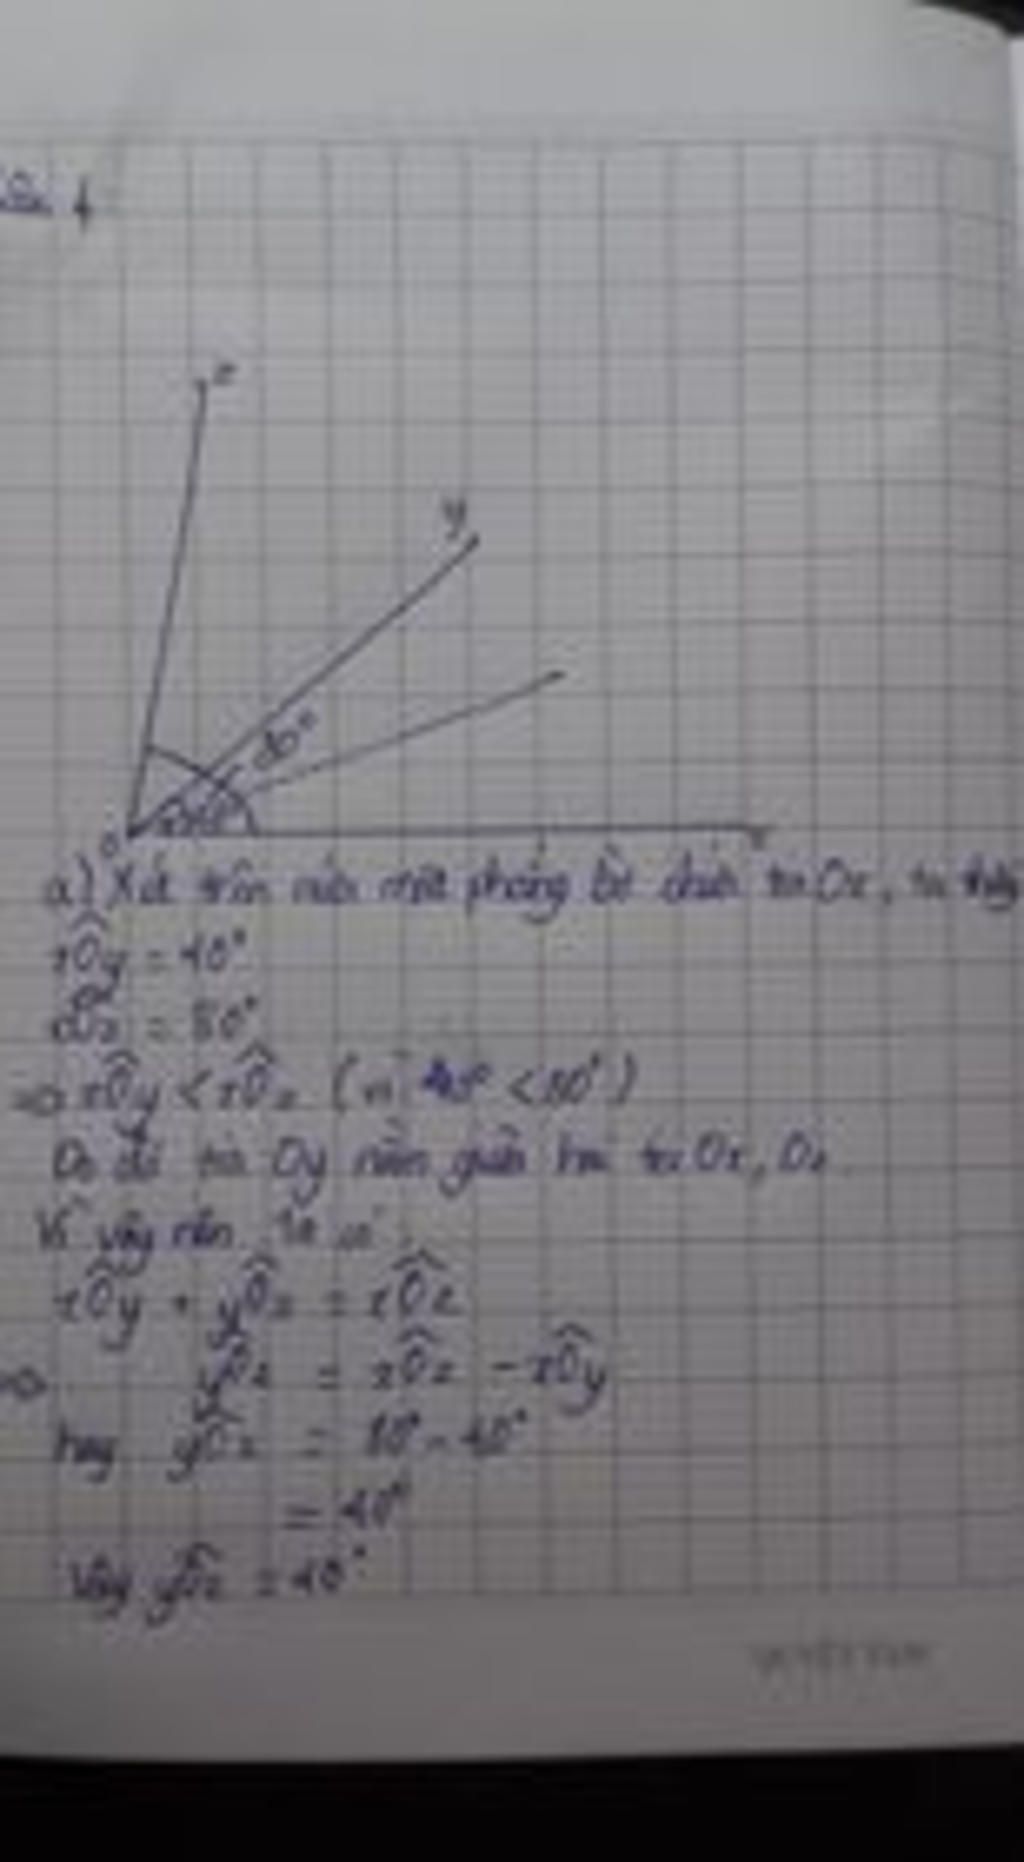 z
y
80°
O
a) Xét trên nửa mặt phẳng bờ chứa tia Ox, ta thấy
xÔy = 40°
xÔz = 80°
=> xÔy < xÔz (vì 40° < 80°)
Do đó tia Oy nằm giữa hai tia Ox, Oz
Vì vậy nên ta có
xÔy + yÔz = xÔz
=> yÔz = xÔz - xÔy
hay yÔz = 80° - 40°
= 40°
Vậy yÔz = 40°